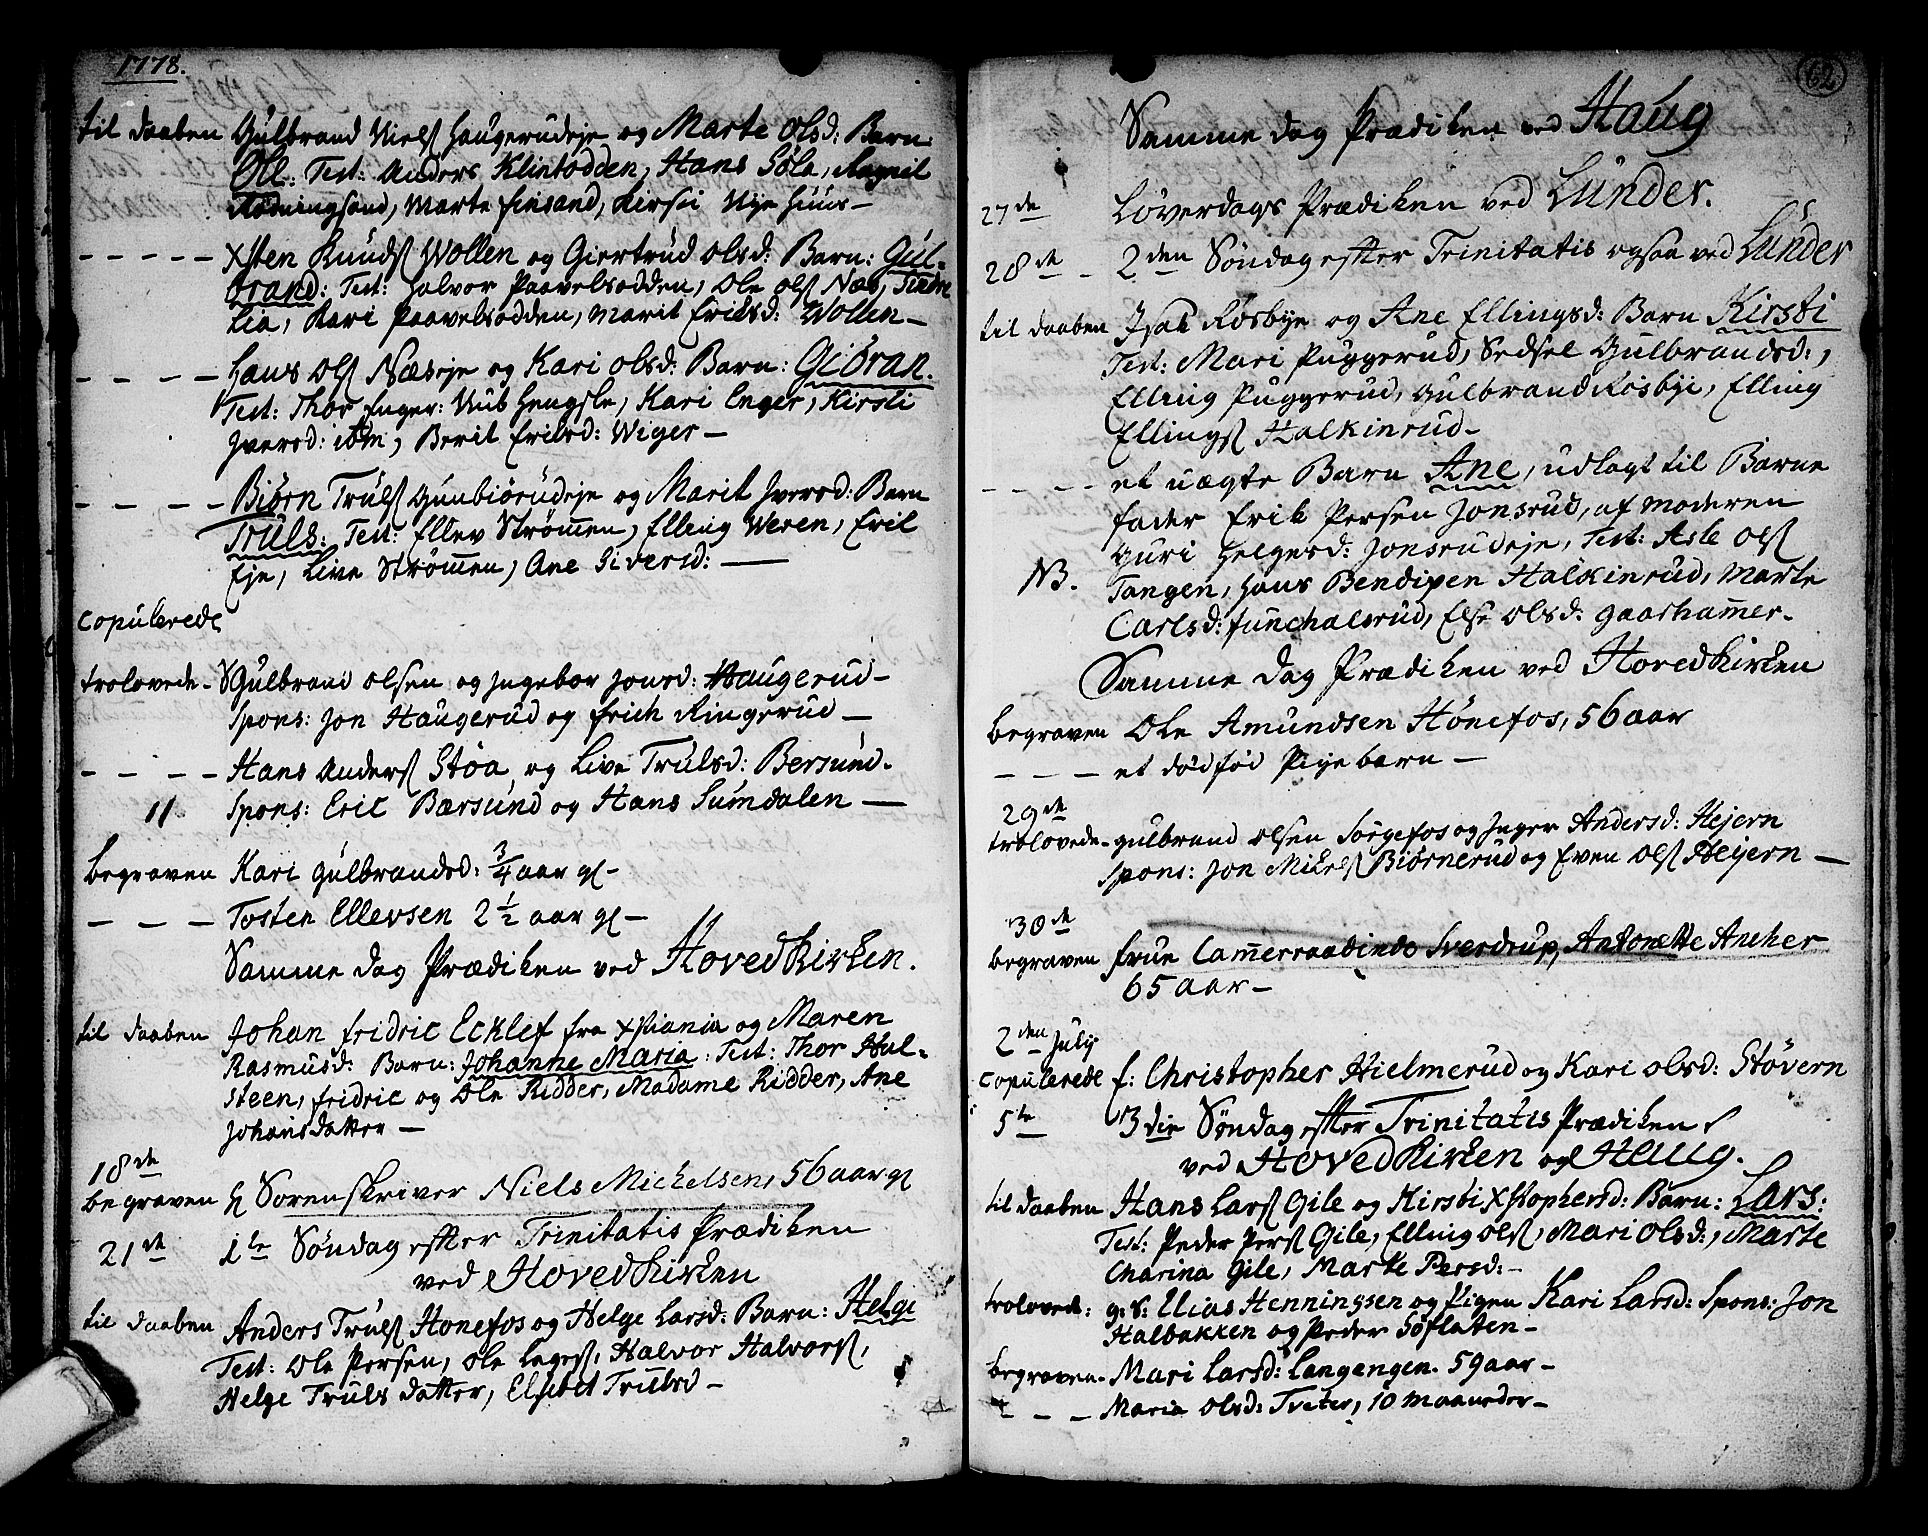 1778.
til daaben Gulbrand Niels Haugerudeje og Marte Olsd: Barn:
Oll: Test: Anders Klintodden, Hans Söle, Ragnil
Rödningsand, Marte Finsand, Kirsti Nye Huus -
- - - - - Xsten Knuds Wollen og Giertrud Olsd: Barn: Gul-
brand: Test: Halvor Paavelsodden, Ole Ols Næs,
Lia, Kari Paavelsodden, Marit Eriksd: Wollen -
- - - - Hans Ols Næseje og Kari Olsd: Barn: Gibran.
Test: Thor Enger: Nub Hengsle, Kari Enger, Kirsti
Iversd: ibm, Berit Eriksd: Wiger -
- - - - Biörn Truls Gunbiörudeje og Marit Iversd: Barn
Truls: Test: Ellev Strömen, Elling Weren, Eril
Eje, Live Strömen, Ane Siversd: -
Copulerede
trolovede - S Gulbrand Olsen og Ingebor Jonsd: Haugerud -
Spons: Jon Haugerud og Erich Ringerud -
- - - - Hans Anders Stöa og Live Trulsd: Bersund.
11 Spons: Eric Bærsund og Hans Sumdalen -
begraven Kari Gulbrandsd: 3/4 aar gl -
- - - Tosten Ellevsen 2 1/2 aar gl -
Samme dag Prædiken ved Hovedkirken.
til daaben Johan Fridric Ecklef fra Xstiania og Maren
Rasmusd: Barn: Johanne Maria: Test: Thor Hal-
steen, Fridric og Ole Ridder, Madame Ridder, Ane
Johansdatter -
18de
begraven H Sorenskriver Niels Michelsen, 56 aar gl
21de 1te Söndag efter Trinitatis Prædiken
ved Hovedkirken
til daaben Anders Truls Honefos og Helge Larsd: Barn: Helge
Test: Ole Persen, Ole Leges, Halvor Halvors,
Helge Truls datter, Elsebet Trulsd -
62
Samme dag Prædiken ved Haug
27de Löverdags Prædiken ved Lunder.
28de - 2den Söndag efter Trinitatis ogsaa ved Lunder
til daaben Isak Rösbye og Ane Ellingsd: Barn Kirsti
Test: Mari Puggerud, Sedsel Gulbrandsd:,
Elling Puggerud, Gulbrand Rösbye, Elling
Ellings Halkinrud -
- - - - et uægte Barn Ane, udlagt til Barne
fader Erik Persen Jonsrud, af moderen
Guri Helgesd: Jonsrudeje, Test: Asle Ols
NB. Tangen, Hans Bendixen Halkinrud, Marte
Carlsd: Funchalsrud, Else Olsd: Gaarhamer -
Samme dag Prædiken ved Hovedkirken
begraven Ole Amundsen Hönefos, 56 aar
- - - et dödföd Pigebarn -
29de
trolovede - Gulbrand Olsen Sörgefos og Inger Andersd: Hejern
Spons: Jon Mikels Biörnerud og Even Ols Heyern -
30de
begraven Frue Camerraadinde Sverdrup, Antonette Ancher
65 aar -
2den July
Copulerede f: Christopher Hielmerud og Kari Olsd: Stövern
5te 3die Söndag efter Trinitatis Prædiken
ved Hovedkirken og Haug.
til daaben Hans Lars Gile og Kirsti Xstophersd: Barn: Lars:
Test: Peder Pers Gile, Elling Ols, Mari Olsd:, Marte
Charina Gile, Marte Persd: -
trolovede: g: S: Elias Henningssen og Pigen Kari Larsd: Spons: Jon
Halbakken og Peder Söflaten -
begraven - Mari Larsd: Langengen. 59 aar -
- - - Maria Olsd: Tveter, 10 maaneder -